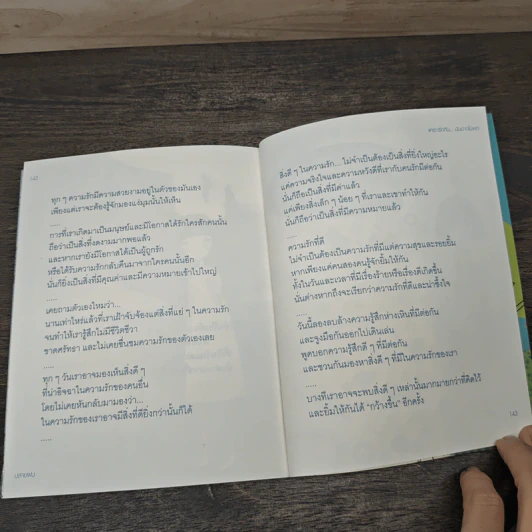 142
ทุก ๆ ความรักมีความสวยงามอยู่ในตัวของมันเอง
เพียงแต่เราจะต้องรู้จักมองแง่มุมนั้นให้เห็น
.....
การที่เราเกิดมาเป็นมนุษย์และมีโอกาสได้รักใครสักคนนั้น
ถือว่าเป็นสิ่งที่งดงามมากพอแล้ว
และหากเรายังมีโอกาสได้เป็นผู้ถูกรัก
หรือได้รับความรักกลับคืนมาจากใครคนนั้นอีก
นั่นก็ยิ่งเป็นสิ่งที่มีคุณค่าและมีความหมายเข้าไปใหญ่
.....
เคยถามตัวเองไหมว่า...
นานเท่าไหร่แล้วที่เราเฝ้าจับจ้องแต่สิ่งที่แย่ ๆ ในความรัก
จนทำให้เรารู้สึกไม่มีชีวิตชีวา
ขาดศรัทธา และไม่เคยชื่นชมความรักของตัวเองเลย
.....
ทุก ๆ วันเราอาจมองเห็นสิ่งดี ๆ
ที่น่าอิจฉาในความรักของคนอื่น
โดยไม่เคยหันกลับมามองว่า...
ในความรักของเราอาจมีสิ่งที่ดียิ่งกว่านั้นก็ได้
.....
สิ่งดี ๆ ในความรัก... ไม่จำเป็นต้องเป็นสิ่งที่ยิ่งใหญ่อะไร
แค่ความจริงใจและความหวังดีที่เรากับคนรักมีต่อกัน
นั่นก็ถือเป็นสิ่งที่มีค่าแล้ว
แค่เพียงสิ่งเล็ก ๆ น้อย ๆ ที่เราและเขาทำให้กัน
นั่นก็ถือว่าเป็นสิ่งที่มีความหมายแล้ว
.....
ความรักที่ดี
ไม่จำเป็นต้องเป็นความรักที่มีแต่ความสุขและรอยยิ้ม
หากเพียงแค่คนสองคนรู้จักยิ้มให้กัน
ทั้งในวันและเวลาที่มีเรื่องร้ายหรือเรื่องดีเกิดขึ้น
นั่นต่างหากถึงจะเรียกว่าความรักที่ดีและน่าซึ้งใจ
.....
วันนี้ลองลบล้างความรู้สึกห่างเหินที่มีต่อกัน
และจูงมือกันออกไปเดินเล่น
พูดบอกความรู้สึกดี ๆ ที่มีต่อกัน
และชวนกันมองหาสิ่งดี ๆ ที่มีในความรักของเรา
.....
บางทีเราอาจจะพบสิ่งดี ๆ เหล่านั้นมากมายกว่าที่คิดไว้
และยิ้มให้กันได้ "กว้างขึ้น" อีกครั้ง
143